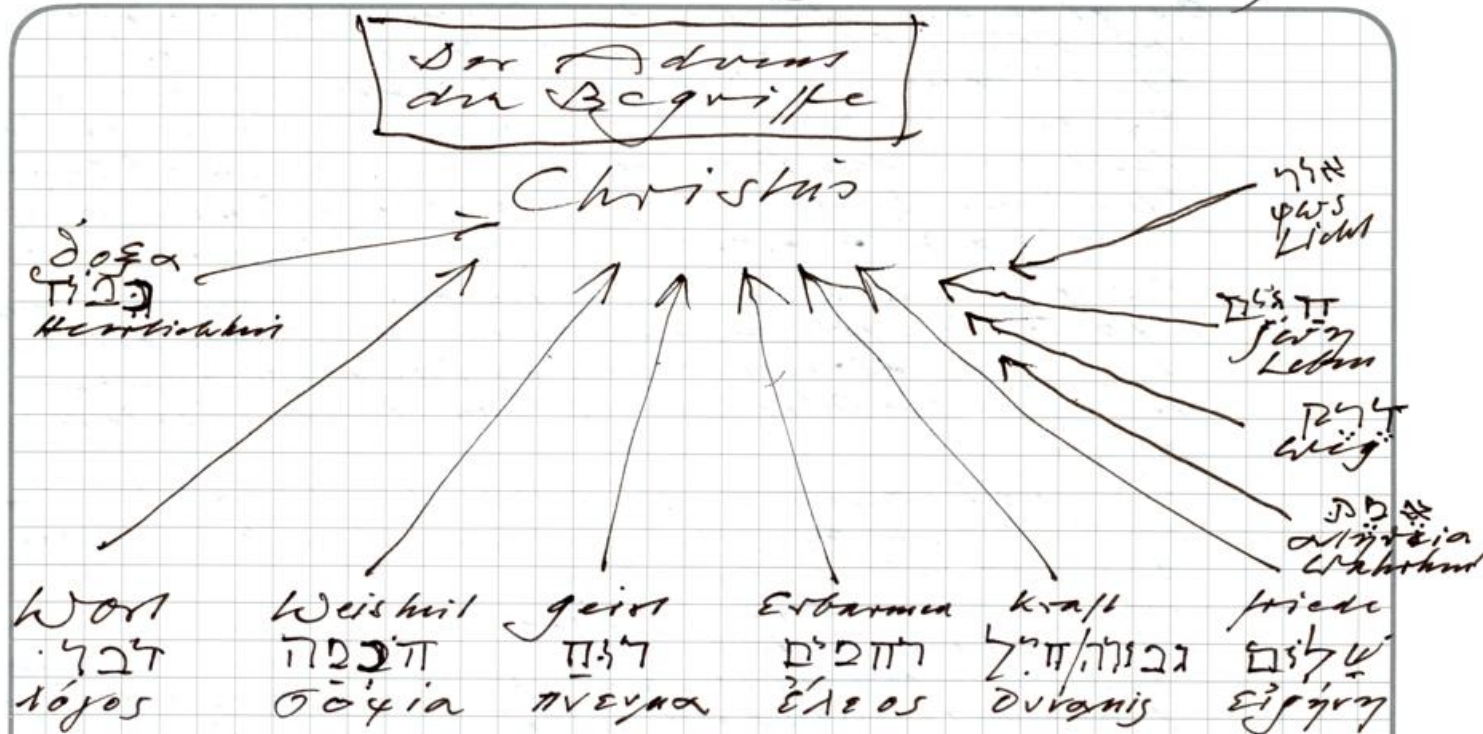 Der Advent
der Begriffe
Christus
δοξα
כבוד
Herrlichkeit
אור
φως
Licht
חיים
ζωη
Leben
דרך
Weg
אמת
αληθεια
Wahrheit
Wort
דבר
λόγος
Weisheit
חכמה
σοφία
Geist
רוח
πνευμα
Erbarmen
רחמים
ἔλεος
Kraft
גבורה/חיל
δυναμις
Friede
שלום
εἰρήνη